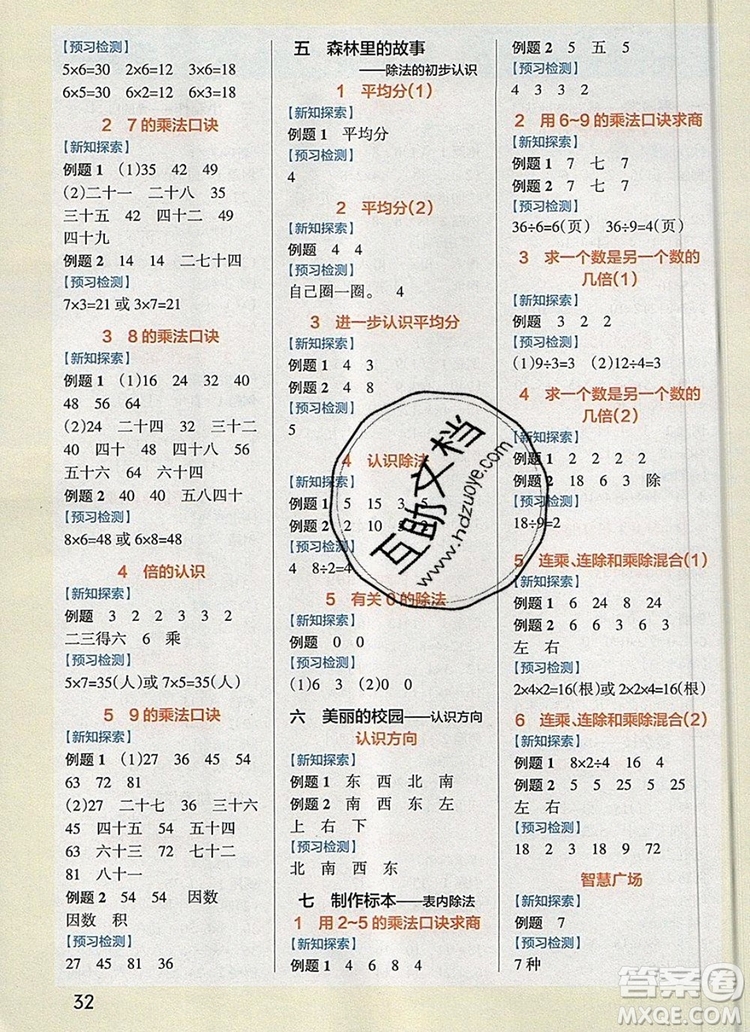 【预习检测】
5×6=30 2×6=12 3×6=18
6×5=30 6×2=12 6×3=18
2 7的乘法口诀
【新知探索】
例题1 (1)35 42 49
(2)二十一 二十八 35
三十五 42 四十二 49
四十九
例题2 14 14 二七十四
【预习检测】
7×3=21或3×7=21
3 8的乘法口诀
【新知探索】
例题1 (1)16 24 32 40
48 56 64
(2)24 二十四 32 三十二
40 四十 48 四十八 56
五十六 64 六十四
例题2 40 40 五八四十
【预习检测】
8×6=48或6×8=48
4 倍的认识
【新知探索】
例题 3 2 2 3 3 2
二三得六 6 乘
【预习检测】
5×7=35(人)或7×5=35(人)
5 9的乘法口诀
【新知探索】
例题1 (1)27 36 45 54
63 72 81
(2)27 二十七 36 三十六
45 四十五 54 五十四
63 六十三 72 七十二
81 八十一
例题2 54 54 因数
因数 积
【预习检测】
27 45 81 36
32
五 森林里的故事
——除法的初步认识
1 平均分(1)
【新知探索】
例题1 平均分
【预习检测】
4
2 平均分(2)
【新知探索】
例题 4 4
【预习检测】
自己圈一圈。 4
3 进一步认识平均分
【新知探索】
例题1 4 3
例题2 4 8
【预习检测】
5
4 认识除法
【新知探索】
例题1 5 15 3 5
例题2 2 10 5 2
【预习检测】
4 8÷2=4
5 有关0的除法
【新知探索】
例题 0 0
【预习检测】
(1)6 3 (2)0
六 美丽的校园——认识方向
认识方向
【新知探索】
例题1 东 西 北 南
例题2 南 西 东 左
上 右 下
【预习检测】
北 南 西 东
七 制作标本——表内除法
1 用2~5的乘法口诀求商
【新知探索】
例题1 4 6 8 4
例题2 5 五 5
【预习检测】
4 3 3 2
2 用6~9的乘法口诀求商
【新知探索】
例题1 7 七 7
例题2 7 七 7
【预习检测】
36÷6=6(页) 36÷9=4(页)
3 求一个数是另一个数的
几倍(1)
【新知探索】
例题 3 2 2
【预习检测】
(1)9÷3=3 (2)6÷2=3
4 求一个数是另一个数的
几倍(2)
【新知探索】
例题1 2 2 2 2
例题2 18 6 3 除
【预习检测】
18÷9=2
5 连乘、连除和乘除混合(1)
【新知探索】
例题1 6 24 8 24
例题2 6 6 3 63 3
左 右
【预习检测】
2×2×4=16(根) 2×4×2=16(根)
6 连乘、连除和乘除混合(2)
【新知探索】
例题1 8×2÷4 16 4
例题2 5 5 25 5 25
左 右
【预习检测】
18 2 9 18 36 72
智慧广场
【新知探索】
例题 7
【预习检测】
7种
互助文档
www.hdzuoye.com
答案圈
MXQE.COM